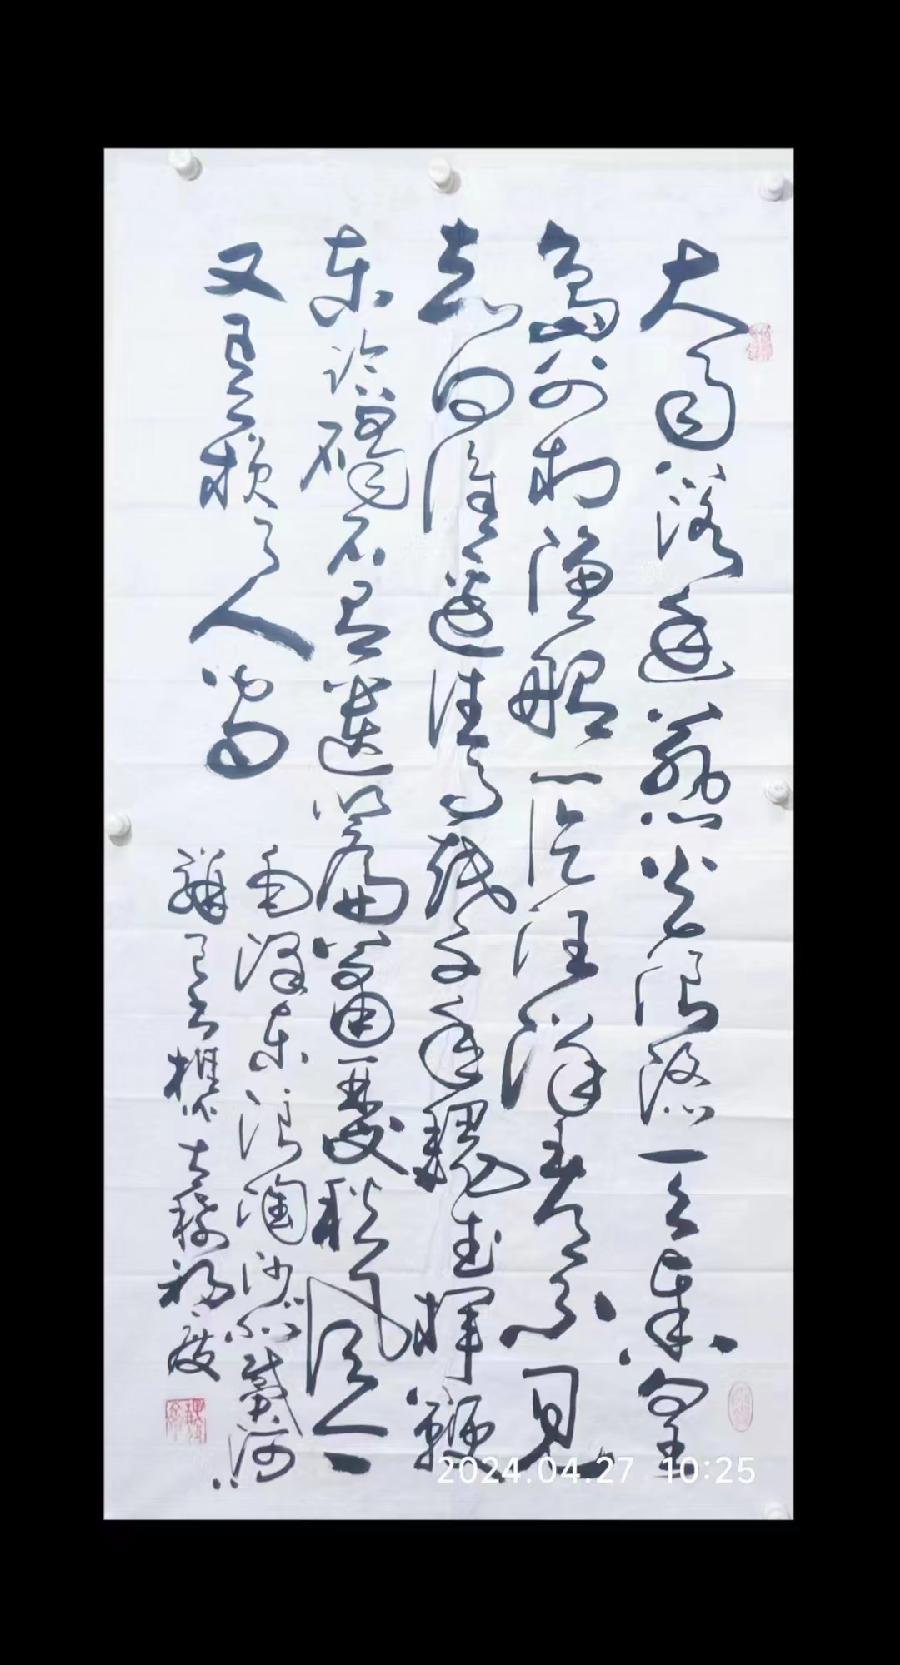 大雨落幽燕白浪滔天秦皇
島外打漁船一片汪洋都不見
知向誰邊往事越千年魏武揮鞭
東臨碣石有遺篇蕭瑟秋風今
又是換了人間
毛澤東浪淘沙北戴河
2024.04.27 10:25